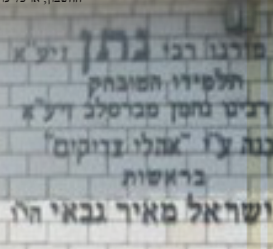 מורנו רבי נתן זיע"א
תלמידו המובהק
רבינו נחמן מברסלב זיע"א
ע"י "אהלי צדיקים"
בראשות
ישראל מאיר גבאי הי"ו